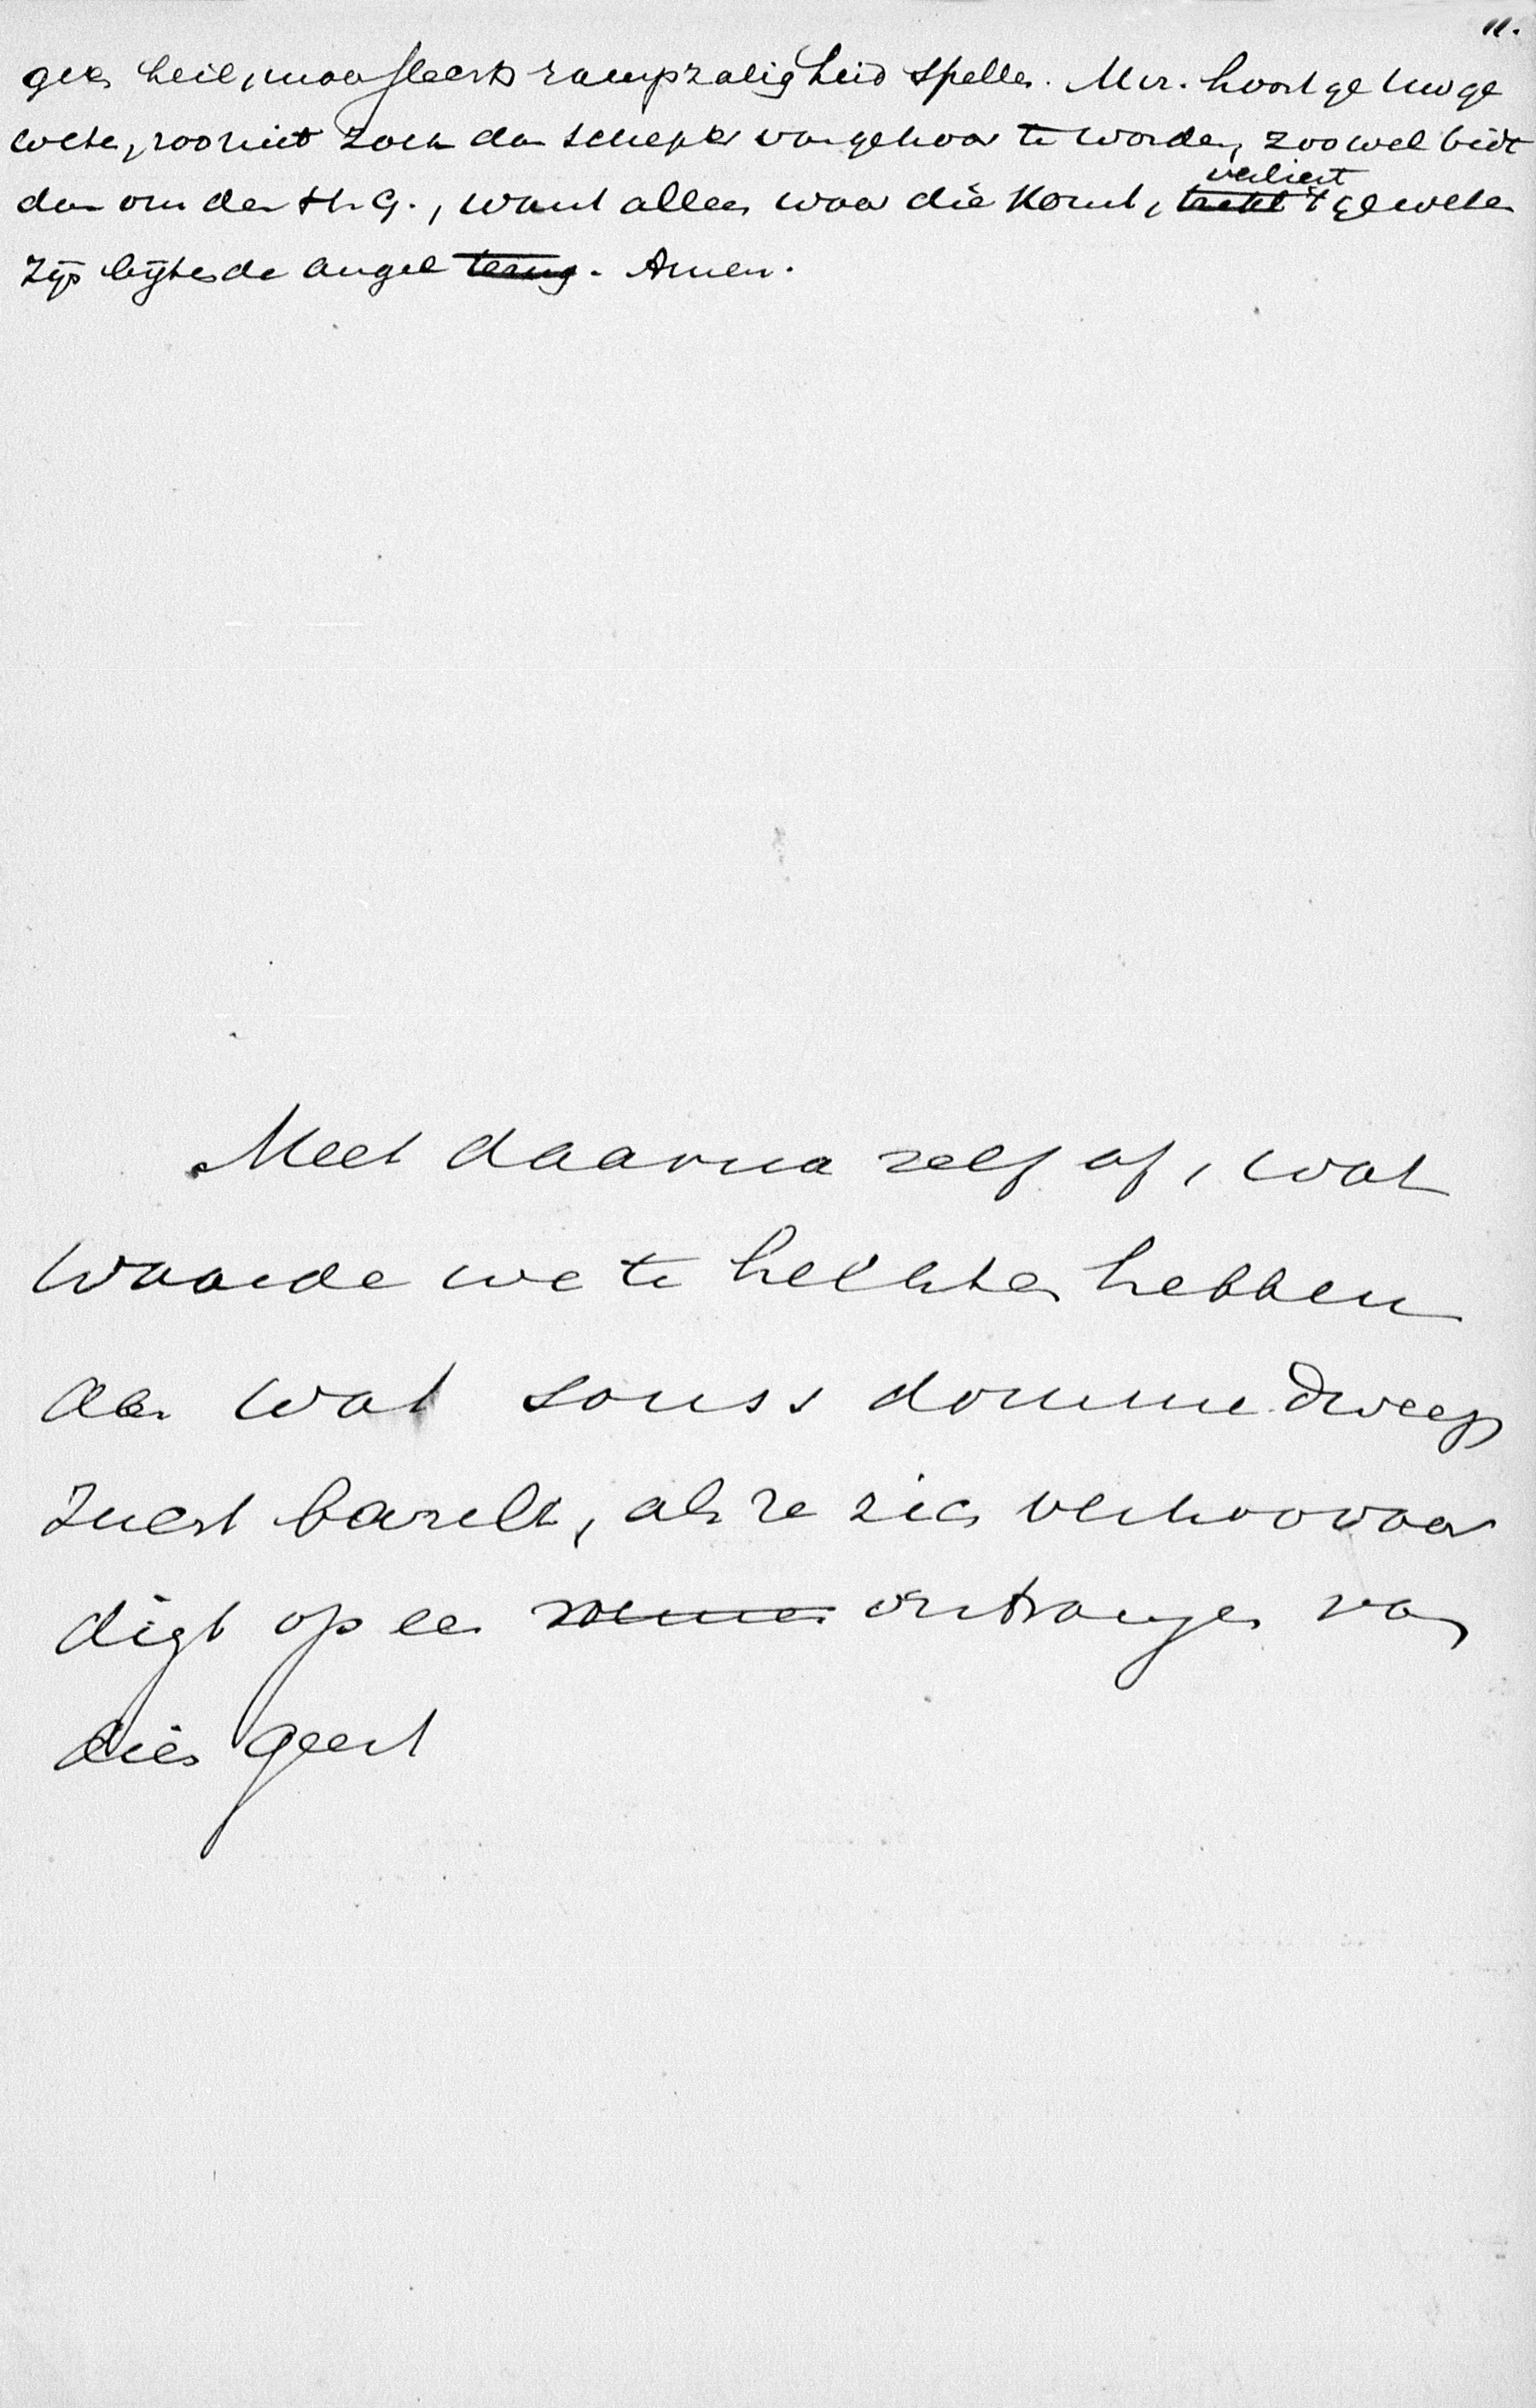 11.
geen heil, maar slechts rampzaligheid spellen. M.a. hoort ge Uw ge
weten, zoo niet zoek dan schepen van gehoor te worden, zoo wel bidt
dan om den H. G., want alleen waar die komt, trekt verliest 't geweten
zijn bijtende angel terug. Amen.
Meet daarna zelf af, wat
waarde we te hechten hebben
aan wat soms domme dweep
zucht bazelt, als ze zich verhoovaar
digt op een ontvangen van
dien geest